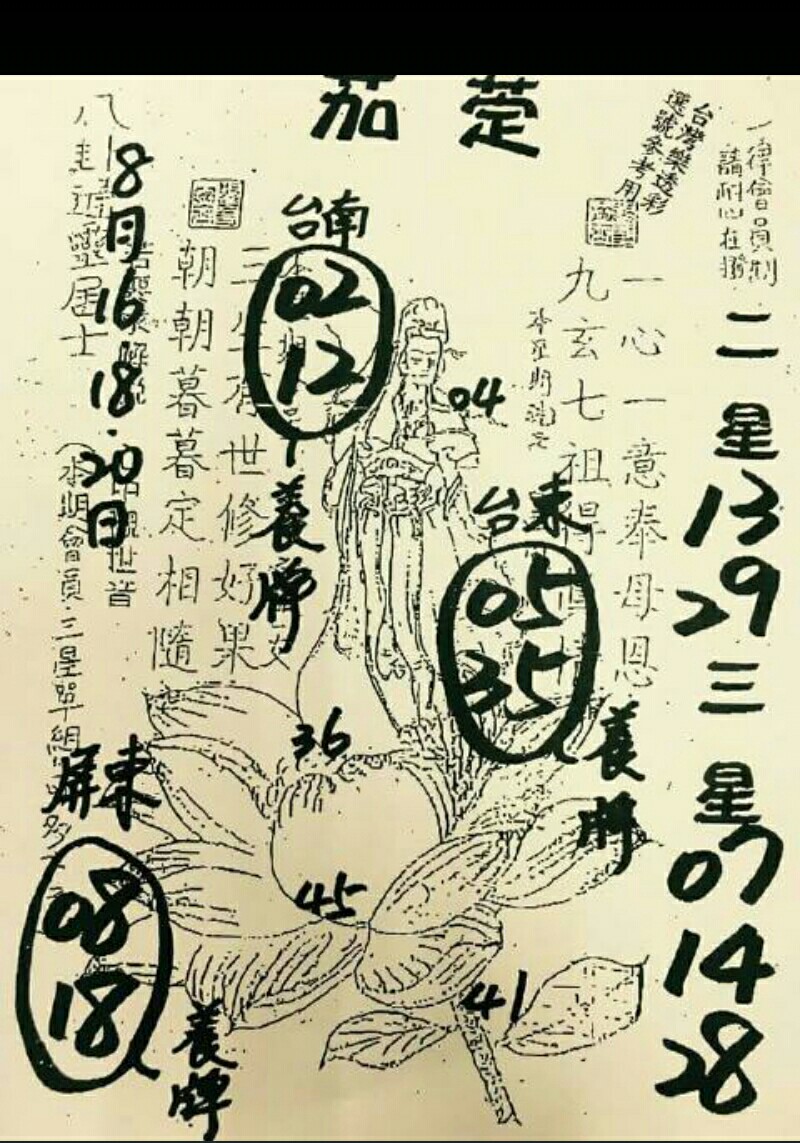 茄萣
台灣樂透彩
選號參考用
一律會員制
請耐心在撥
二星
13
29
三星
07
14
28
一心一意奉母恩
九玄七祖得
台南
02
12
養牌
04
台東
05
35
養牌
三生有世修好果
朝朝暮暮定相隨
8月16.18.20日
居士
觀世音
本期會員.三星單組
36
屏東
08
18
養牌
45
41